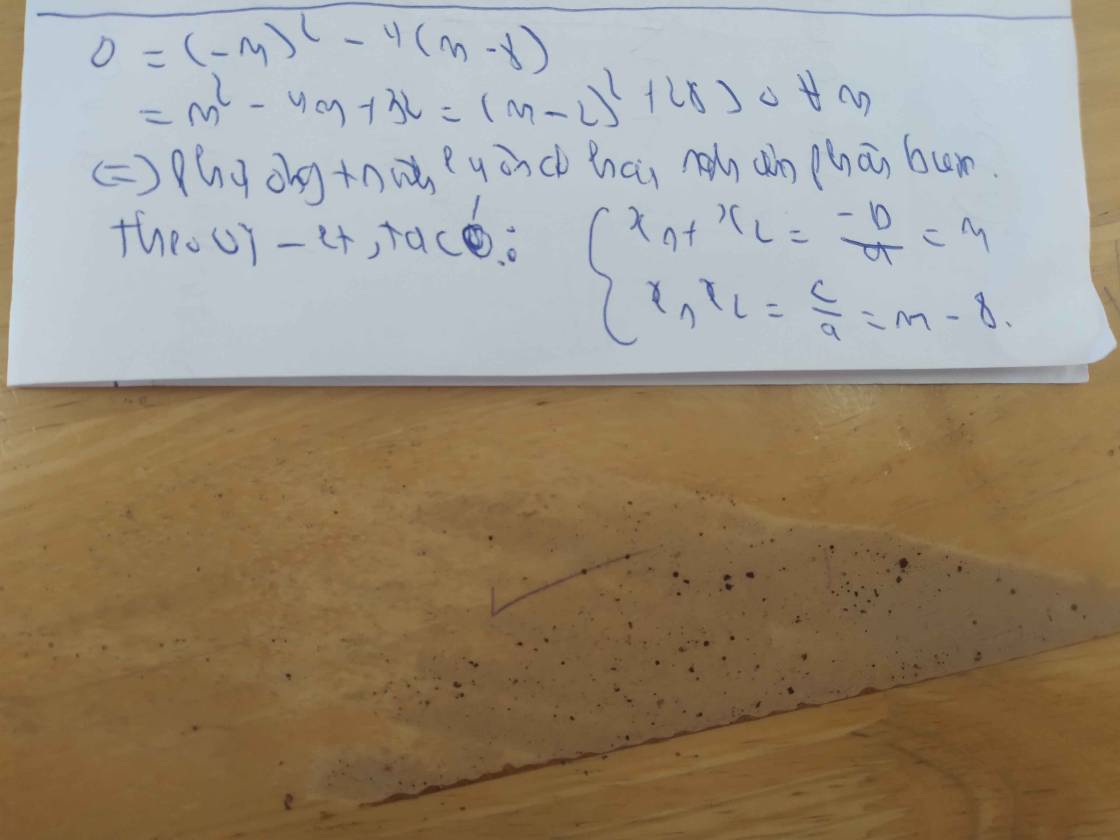 Δ = (-m)² - 4(m - 8)
= m² - 4m + 32 = (m - 2)² + 28 > 0 ∀ m
(=) Phương trình luôn có hai nghiệm phân biệt.
Theo vi-et, ta có: { x₁ + x₂ = -b/a = m
x₁x₂ = c/a = m - 8.